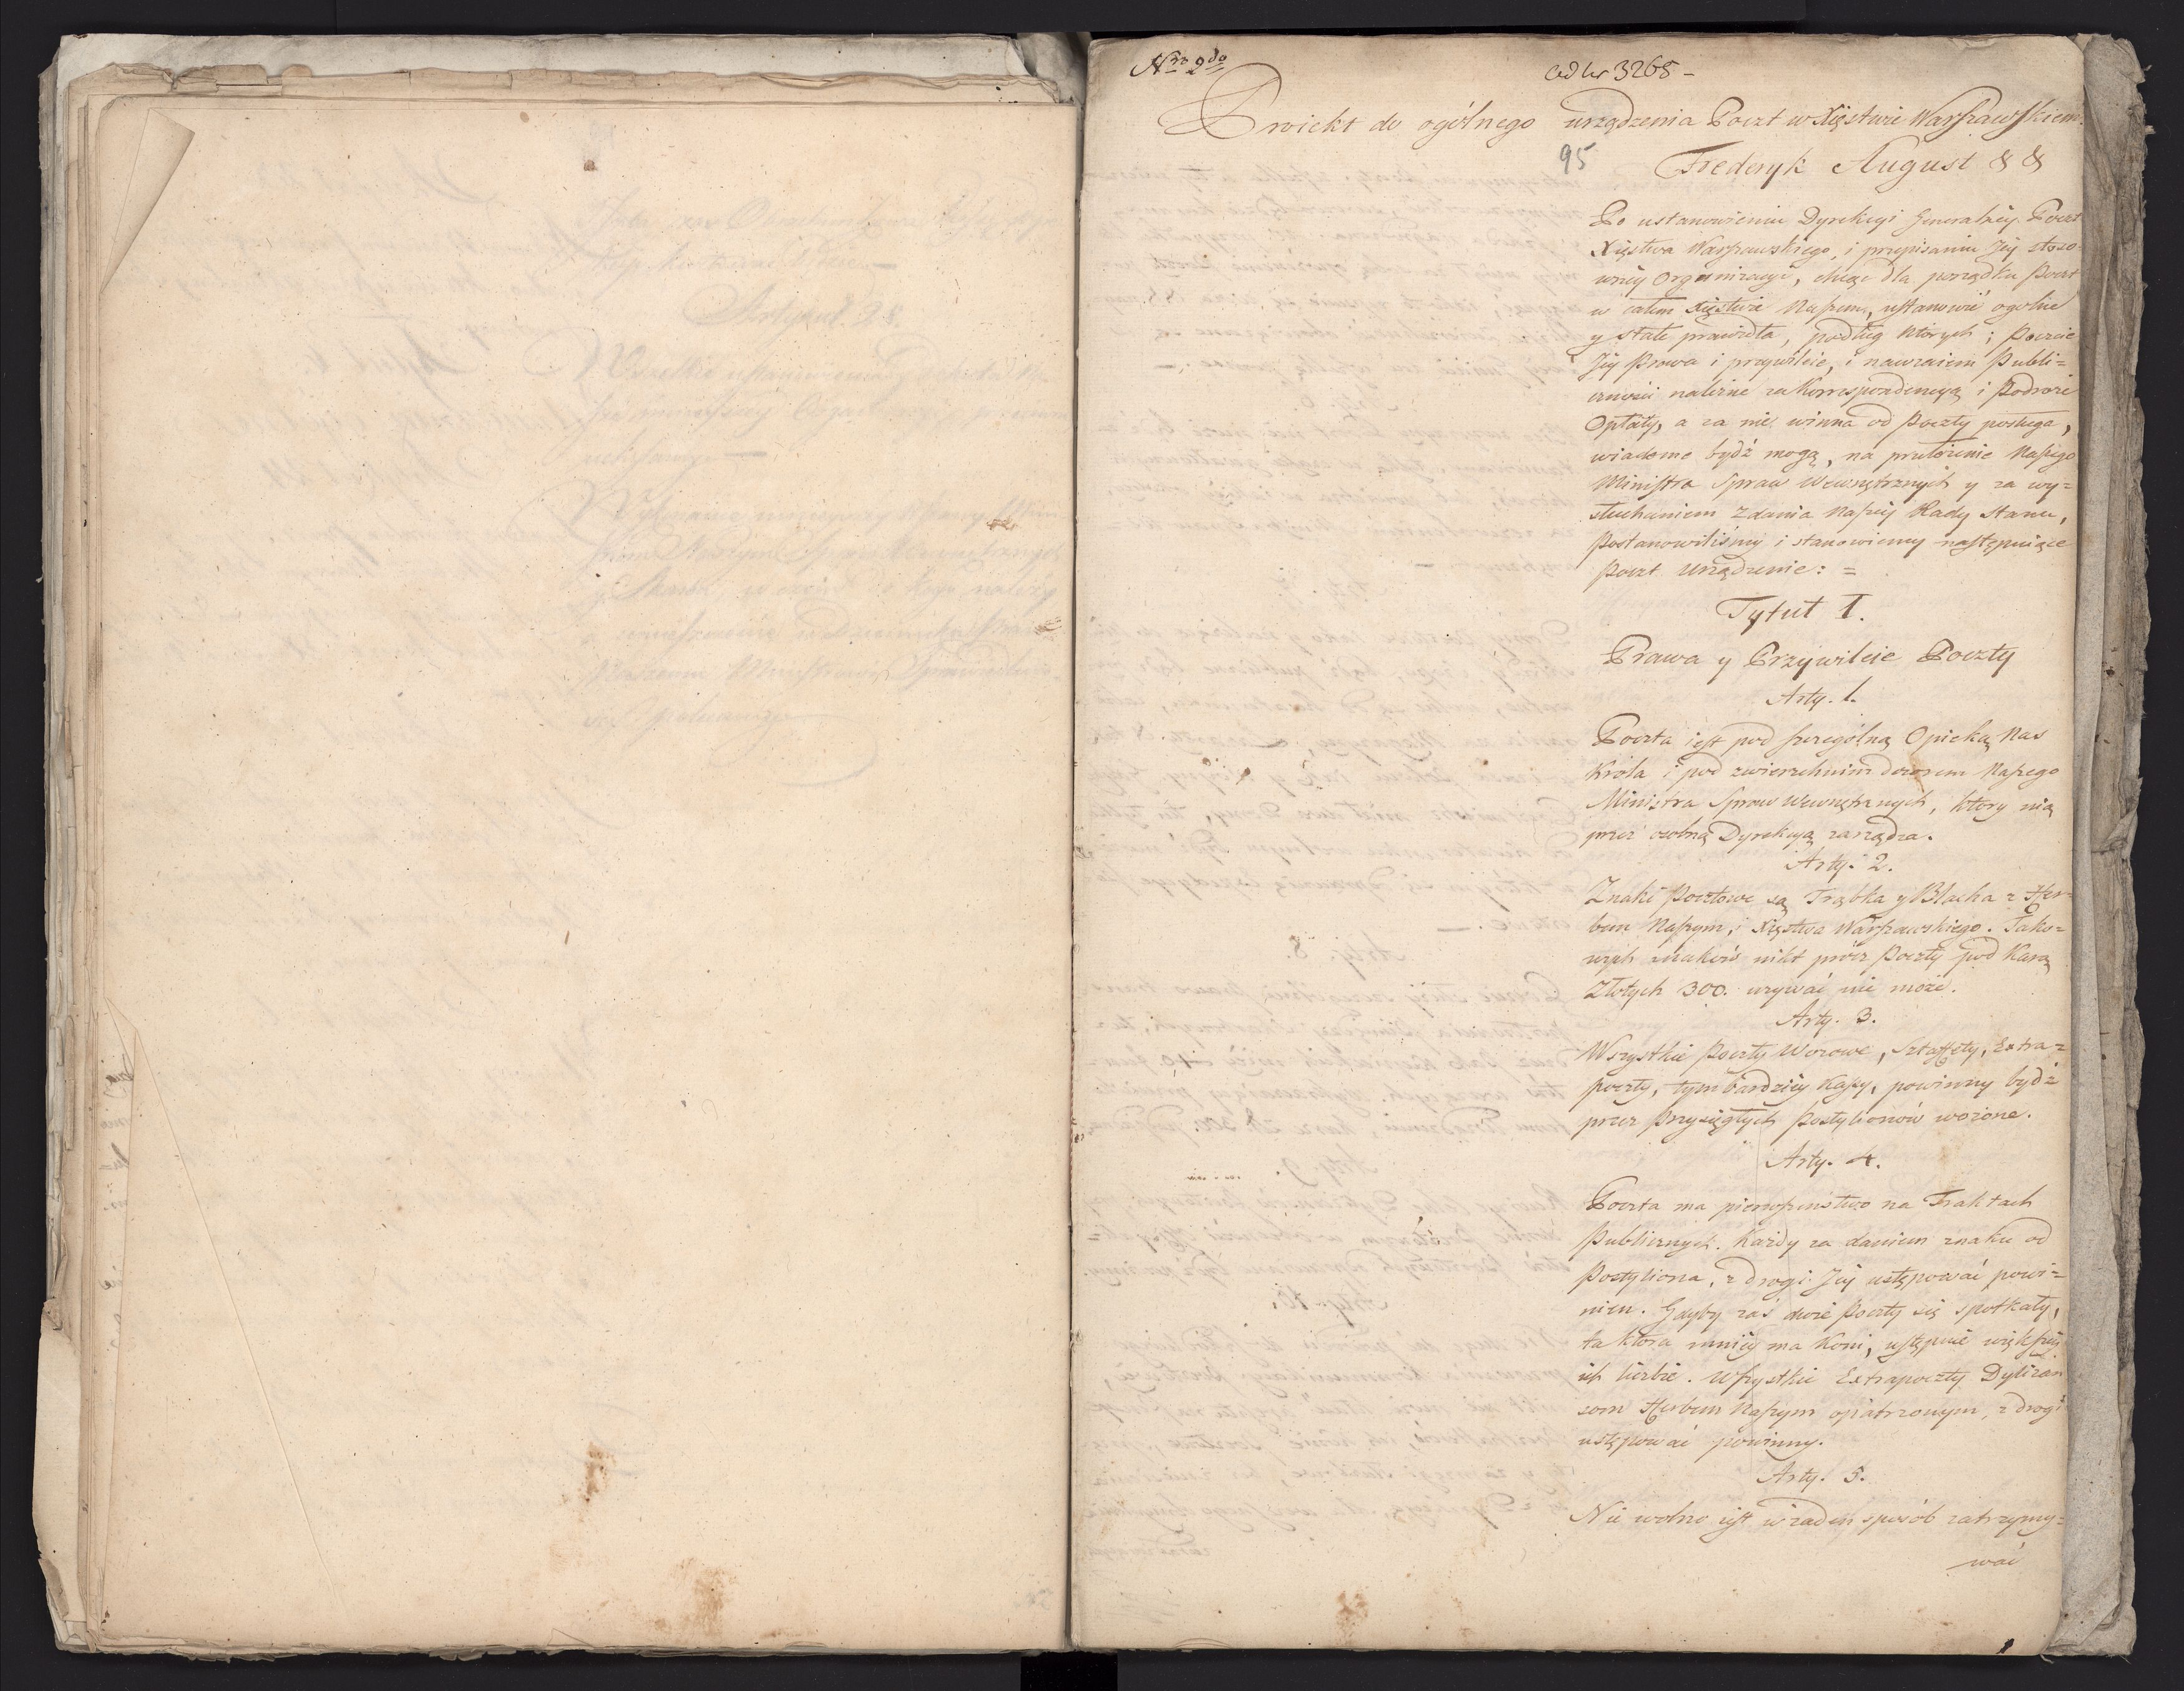 Nro 2do
ad Nr 3265 -
Proiekt do ogólnego urządzenia Poczt w Xięstwie Warszawskiem.
95
Frederyk August & &
Po ustanowieniu Dyrekcyi Generalnéy Poczt
Xięstwa Warszawskiego, i przepisaniu Jéy stoso-
wnéy Organizacyi, chcąc dla porządku Poczt
w całem Xięstwie Naszem, ustanowić ogolne
y stałe prawidła, podług których; Poczcie
Jéy Prawa i przywileie, i nawzaiem Publi=
czności należne za Korrespondencyą i Podroże
Opłaty, a za nie winna od Poczty posługa,
wiadome bydź mogą, na przełożenie Naszego
Ministra Spraw Wewnętrznych y za wy=
słuchaniem Zdania Naszéy Rady Stanu,
Postanowiliśmy i stanowiemy następuiące
Poczt Urządzenie: =
Tytuł I.
Prawa y Przywileie Poczty
Arty. 1.
Poczta iest pod szczególną Opieką Nas
Króla i pod zwierzchnim dozorem Naszego
Ministra Spraw Wewnętrznych, ktory nią
przez osobną Dyrekcyą zarządza.
Arty. 2.
Znaki Pocztowe są Trąbka y Blacha z Her=
bem Naszym, i Xięstwa Warszawskiego. Tako=
wych znaków nikt prócz Poczty pod Karą
Złotych 300. używać nie może.
Arty. 3.
Wszystkie Poczty Worowe, Sztaffety, Extra=
poczty, tym bardziéy Kassy, powinny bydź
przez Przysięgłych Postylionów wożone.
Arty. 4.
Poczta ma pierwszeństwo na Traktach
Publicznych. Każdy za daniem znaku od
Postyliona, z drogi Jéy ustępować powi=
nien. Gdyby zaś dwie Poczty się spotkały,
ta ktora mniéy ma Koni, ustępuie większéy
ich liczbie. Wszystkie Extrapoczty Dyliżan
som Herbem Naszym opatrzonym, z drogi
ustępować powinny.
Arty. 5.
Nie wolno iest w żaden sposób zatrzymy=
wać